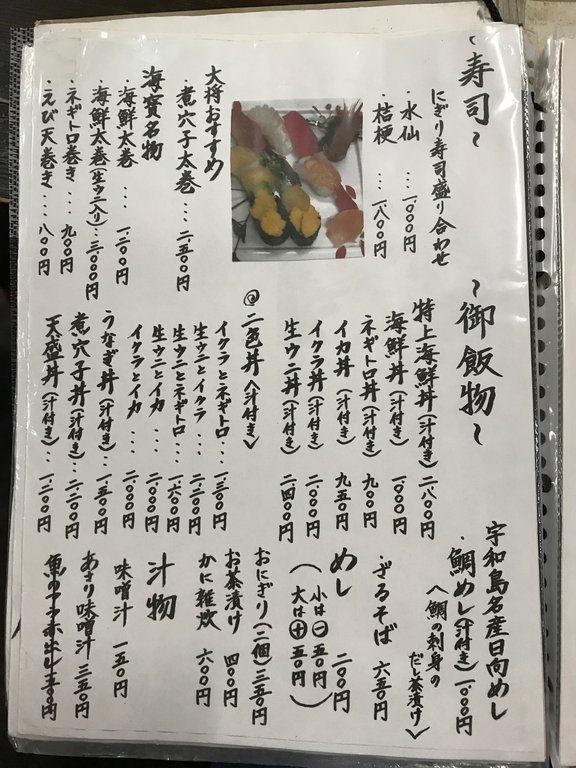 ~寿司~
にぎり寿司盛り合わせ
・水仙 ... 一、〇〇〇円
・桔梗 ... 一、八〇〇円
大将おすすめ
・煮穴子太巻 ... 二、五〇〇円
海寳名物
・海鮮太巻 ... 一、二〇〇円
・海鮮太巻(生ウニ入り) ... 三、〇〇〇円
・ネギトロ巻き ... 九〇〇円
・えび天巻き ... 八〇〇円
~御飯物~
特上海鮮丼(汁付き) 二八〇〇円
海鮮丼(汁付き) 一、〇〇〇円
ネギトロ丼(汁付き) 九〇〇円
イカ丼(汁付き) 九五〇円
イクラ丼(汁付き) 二、〇〇〇円
生ウニ丼(汁付き) 二四〇〇円
◎二色丼<汁付き>
イクラとネギトロ ... 一、三〇〇円
生ウニとイクラ ... 二、二〇〇円
生ウニとネギトロ ... 一、六〇〇円
生ウニとイカ ... 二、〇〇〇円
イクラとイカ ... 二、〇〇〇円
うなぎ丼(汁付き) ... 一、五〇〇円
煮穴子丼(汁付き) ... 二、二〇〇円
天盛丼(汁付き) ... 一、二〇〇円
宇和島名産日向めし
・鯛めし(汁付き) 一、〇〇〇円
<鯛の刺身の
だし茶漬け>
・ざるそば 六五〇円
めし 二〇〇円
(小は㊀五〇円
大は㊉五〇円)
おにぎり(二個) 三五〇円
お茶漬け 四〇〇円
かに雑炊 六〇〇円
汁物
味噌汁 一五〇円
あさり味噌汁 三五〇円
魚のアラ赤出し